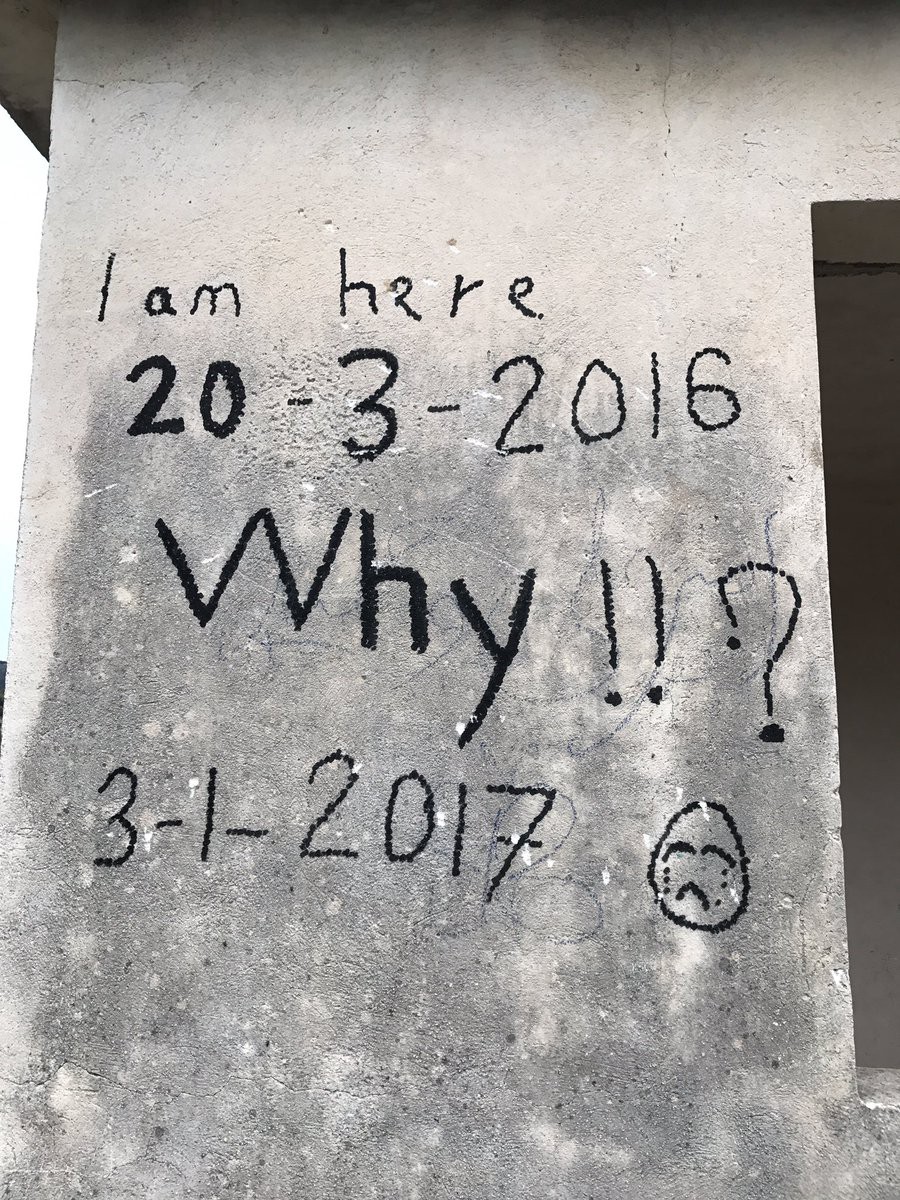 I am here
20-3-2016
Why !! ?
3-1-2017